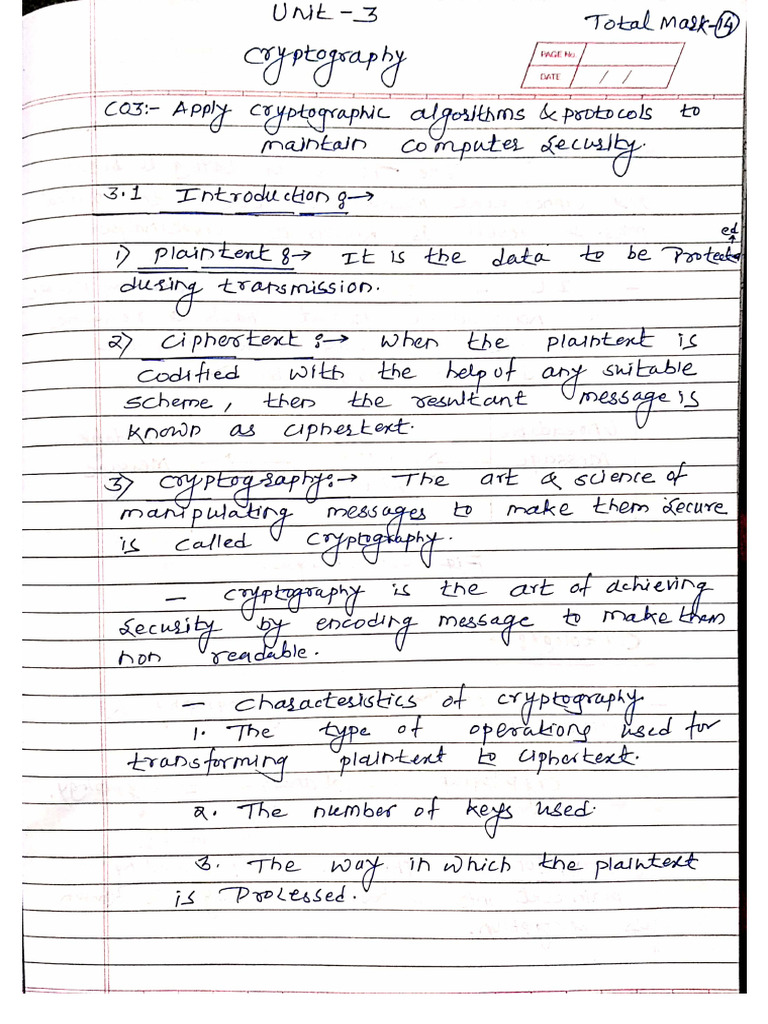 Unit - 3
Total Mark - 14
Cryptography
PAGE No.
DATE / /
CO3:- Apply cryptographic algorithms & protocols to
maintain computer security.
3.1 Introduction :→
1) plaintext :→ It is the data to be Protected
during transmission.
2) Ciphertext :→ When the plaintext is
codified with the help of any suitable
scheme, then the resultant message is
known as ciphertext.
3) Cryptography:→ The art & science of
manipulating messages to make them secure
is called cryptography.
- Cryptography is the art of achieving
security by encoding message to make them
non readable.
- Characteristics of cryptography.
1. The type of operations used for
transforming plaintext to ciphertext.
2. The number of keys used.
3. The way in which the plaintext
is Processed.